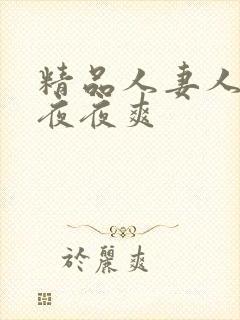 精品人妻人
夜夜爽
於麗爽